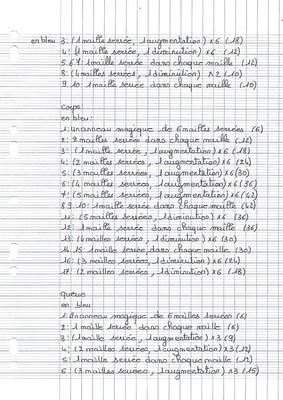 en bleu 3: (1 maille serrée, 1 augmentation) x 6 (18)
4: (1 maille serrée, 1 diminution) x 6 (12)
5.6.7: 1 maille serrée dans chaque maille (12)
8: (4 mailles serrées, 1 diminution) x 2 (10)
9.10: 1 maille serrée dans chaque maille (10)
Corps
en bleu:
1: un anneau magique de 6 mailles serrées (6)
2: 2 mailles serrées dans chaque maille (12)
3: (1 maille serrée, 1 augmentation) x 6 (18)
4: (2 mailles serrées, 1 augmentation) x 6 (24)
5: (3 mailles serrées, 1 augmentation) x 6 (30)
6: (4 mailles serrées, 1 augmentation) x 6 (36)
7: (5 mailles serrées, 1 augmentation) x 6 (42)
8.9.10: 1 maille serrée dans chaque maille (42)
11: (5 mailles serrées, 1 diminution) x 6 (36)
12: 1 maille serrée dans chaque maille (36)
13: (4 mailles serrées, 1 diminution) x 6 (30)
14.15: 1 maille serrée dans chaque maille (30)
16: (3 mailles serrées, 1 diminution) x 6 (24)
17: (2 mailles serrées, 1 diminution) x 6 (18)
queue
en bleu
1: un anneau magique de 6 mailles serrées (6)
2: 1 maille serrée dans chaque maille (6)
3: (1 maille serrée, 1 augmentation) x 3 (9)
4: (2 mailles serrées, 1 augmentation) x 3 (12)
5: 1 maille serrée dans chaque maille (12)
6: (3 mailles serrées, 1 augmentation) x 3 (15)